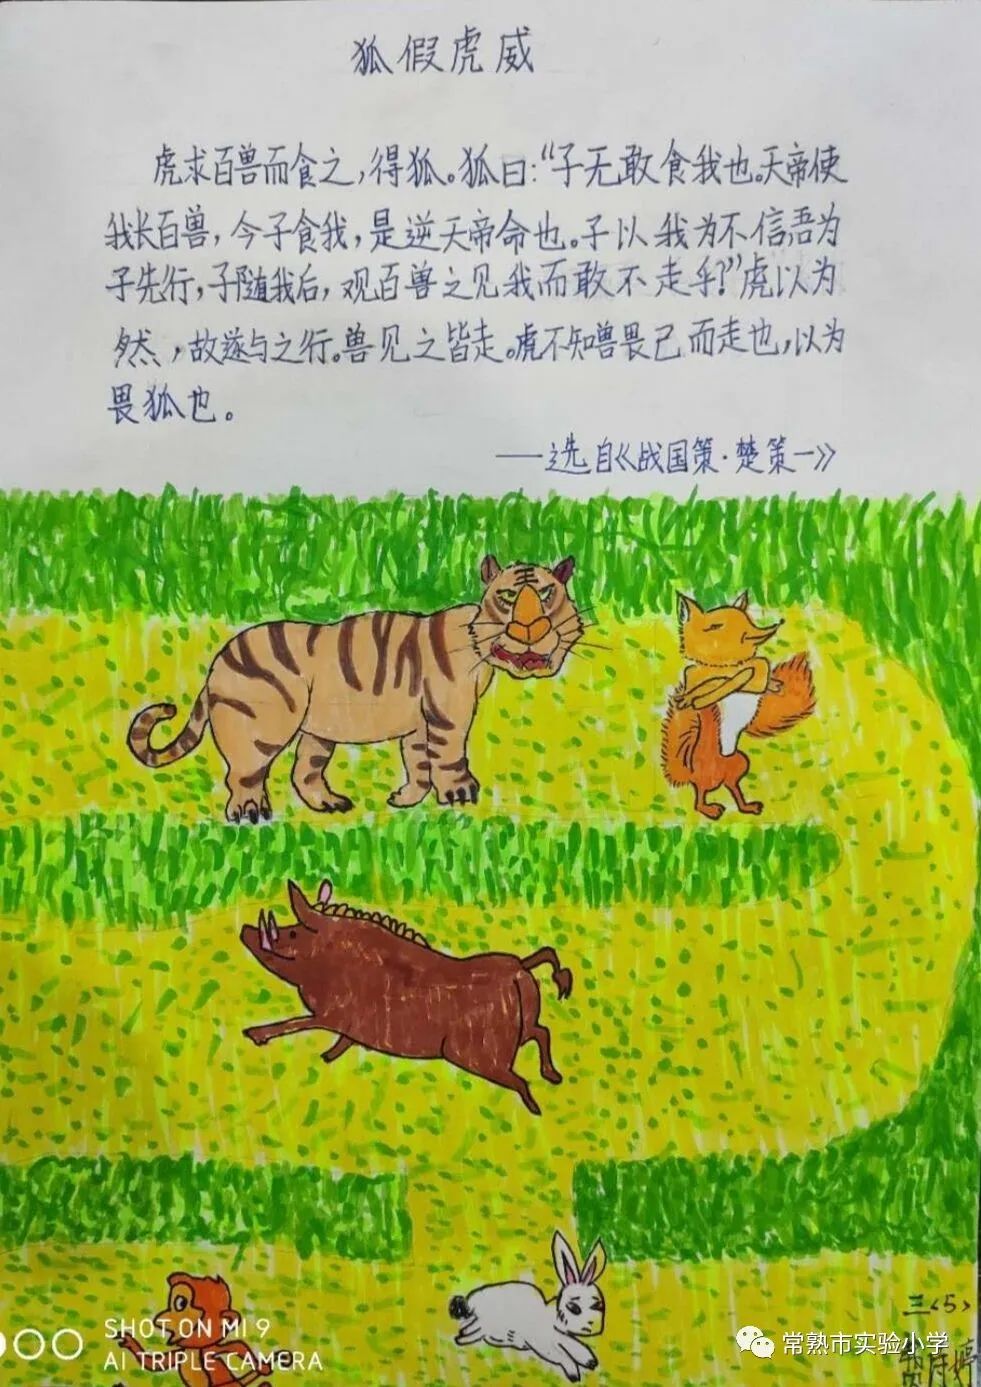 狐假虎威
虎求百兽而食之，得狐。狐曰：“子无敢食我也。天帝使
我长百兽，今子食我，是逆天帝命也。子以我为不信，吾为
子先行，子随我后，观百兽之见我而敢不走乎？”虎以为
然，故遂与之行。兽见之皆走。虎不知兽畏己而走也，以为
畏狐也。
——选自《战国策·楚策一》
三<5>
SHOT ON MI 9
AI TRIPLE CAMERA
常熟市实验小学